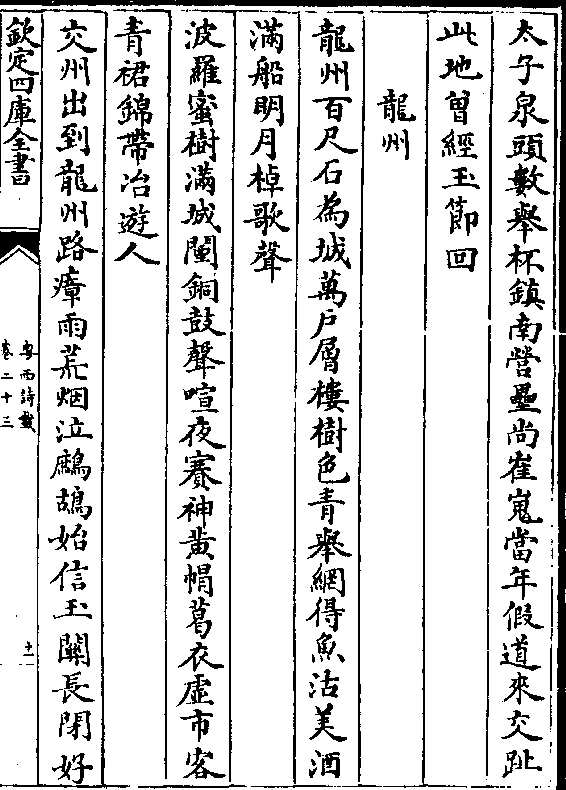 太子泉頭數舉杯鎮南營壘尚崔嵬當年假道來交趾
此地曾經玉節回
龍州
龍州百尺石為城萬戶層樓樹色青舉網得魚沽美酒
滿船明月棹歌聲
波羅蜜樹滿城闉銅鼓聲喧夜賽神黄帽葛衣虛市客
青裙錦帶冶遊人
交州出到龍州路瘴雨荒烟泣鷓鴣始信玉關長閉好
欽定四庫全書
粤西詩載
卷二十三
十一